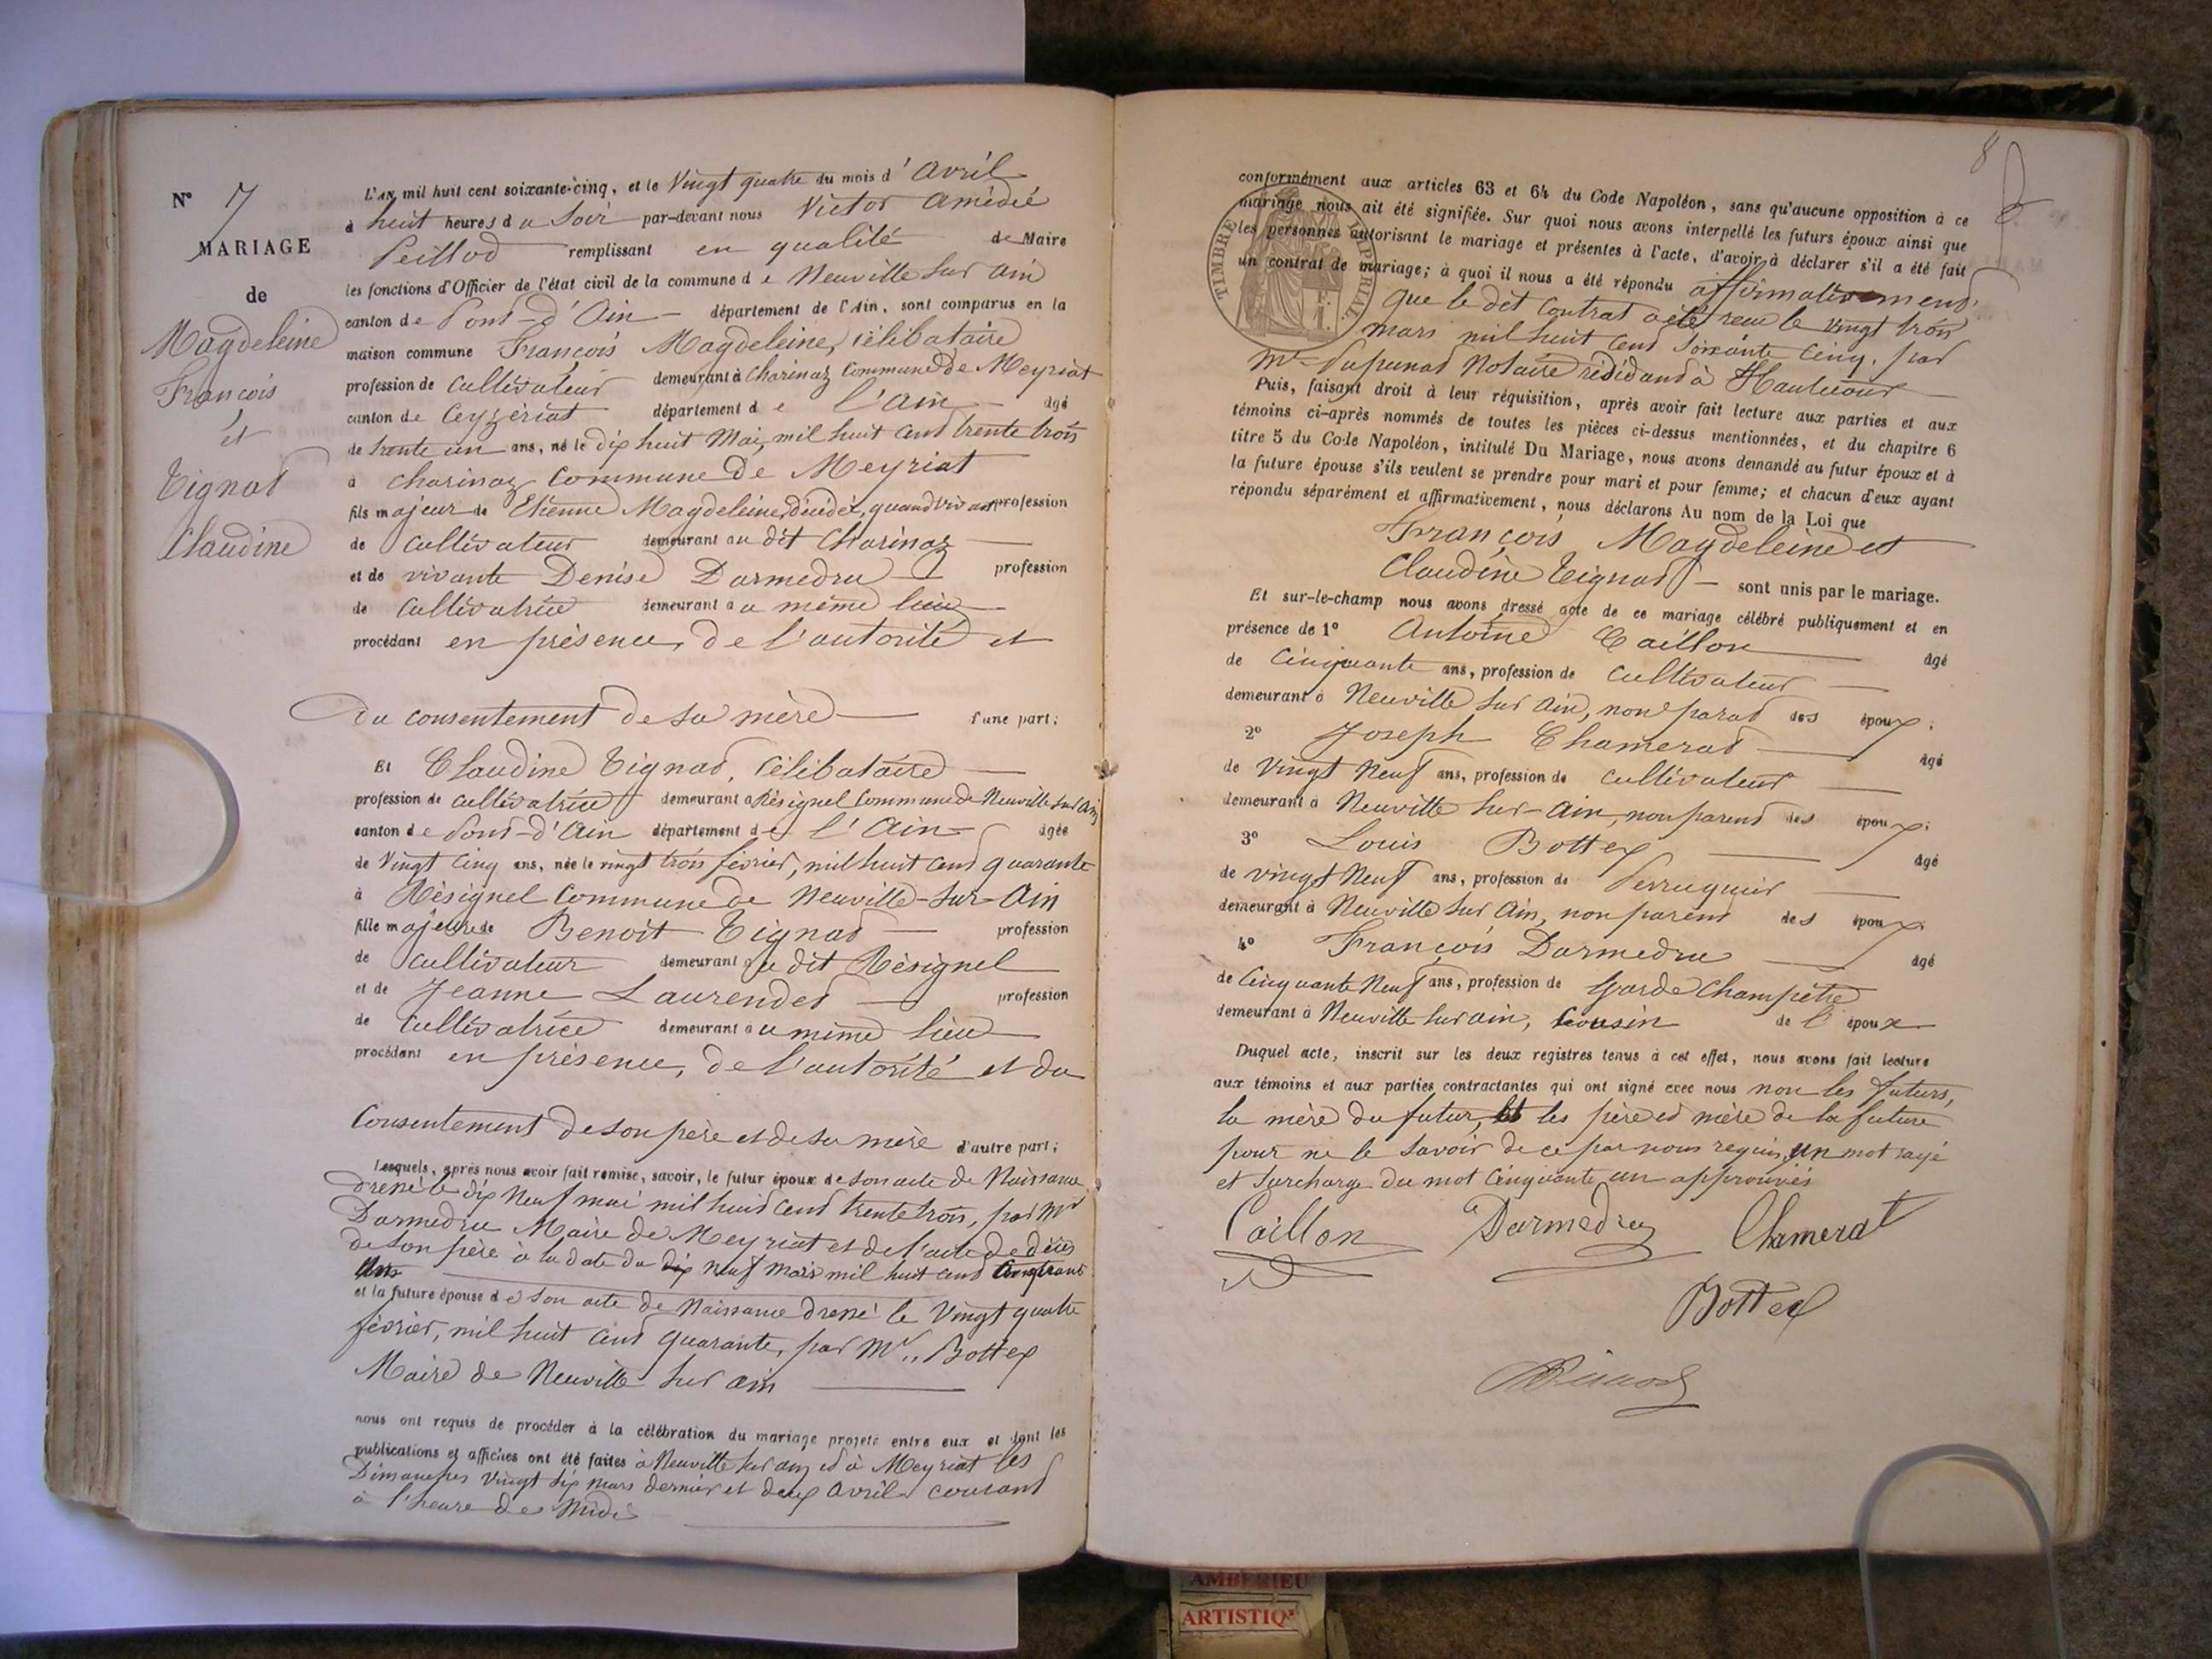 N° 7
MARIAGE
de
Magdeleine
François
et
Tignat
Claudine
L'AN mil huit cent soixante-cinq, et le Vingt quatre du mois d'Avril
à huit heures du Soir par-devant nous Victor Amédée
Peillod remplissant en qualité de Maire
les fonctions d'Officier de l'état civil de la commune de Neuville sur Ain
canton de Pont-d'Ain département de l'Ain, sont comparus en la
maison commune François Magdeleine, célibataire
profession de cultivateur demeurant à Charinaz Commune de Meyriat
canton de Ceyzériat département de l'Ain âgé
de trente un ans, né le dix huit Mai, mil huit cent trente trois
à Charinaz Commune de Meyriat
fils majeur de Etienne Magdeleine, décédé, quand vivant profession
de cultivateur demeurant au dit Charinaz
et de vivante Denise Darmedru profession
de cultivatrice demeurant au même lieu
procédant en présence, de l'autorité et
du consentement de sa mère d'une part;
Et Claudine Tignat, célibataire
profession de cultivatrice demeurant à Résignel Commune de Neuville sur Ain
canton de Pont-d'Ain département de l'Ain âgée
de Vingt cinq ans, née le vingt trois février, mil huit cent quarante
à Résignel Commune de Neuville-sur-Ain
fille majeure de Benoit Tignat profession
de cultivateur demeurant au dit Résignel
et de Jeanne Laurendet profession
de cultivatrice demeurant au même lieu
procédant en présence, de l'autorité et du
Consentement de son père et de sa mère d'autre part;
Lesquels, après nous avoir fait remise, savoir, le futur époux de son acte de Naissance
dressé le dix Neuf mai mil huit cent trente trois, par Mr
Darmedru Maire de Meyriat et de l'acte de décès
de son père à la date du dix neuf Mars mil huit cent Cinquante
un
et la future épouse de son acte de Naissance dressé le Vingt quatre
février, mil huit cent quarante, par Mr Bottex
Maire de Neuville sur Ain
nous ont requis de procéder à la célébration du mariage projeté entre eux et dont les
publications et affiches ont été faites à Neuville sur ain et à Meyriat les
Dimanches vingt six mars dernier et deux Avril courant
à l'heure de Midi
8
conformément aux articles 63 et 64 du Code Napoléon, sans qu'aucune opposition à ce
mariage nous ait été signifiée. Sur quoi nous avons interpellé les futurs époux ainsi que
les personnes autorisant le mariage et présentes à l'acte, d'avoir à déclarer s'il a été fait
un contrat de mariage; à quoi il nous a été répondu affirmativement
TIMBRE IMPÉRIAL
que le dit contrat a été reçu le vingt trois
mars mil huit cent soixante cinq, par
Mr Dupunat Notaire résidant à Hautecour
Puis, faisant droit à leur réquisition, après avoir fait lecture aux parties et aux
témoins ci-après nommés de toutes les pièces ci-dessus mentionnées, et du chapitre 6
titre 5 du Code Napoléon, intitulé Du Mariage, nous avons demandé au futur époux et à
la future épouse s'ils veulent se prendre pour mari et pour femme; et chacun d'eux ayant
répondu séparément et affirmativement, nous déclarons Au nom de la Loi que
François Magdeleine et
Claudine Tignat sont unis par le mariage.
Et sur-le-champ nous avons dressé acte de ce mariage célébré publiquement et en
présence de 1° Antoine Caillon âgé
de Cinquante ans, profession de cultivateur
demeurant à Neuville sur Ain, non parent des époux;
2° Joseph Chamerat âgé
de Vingt Neuf ans, profession de cultivateur
demeurant à Neuville sur-Ain, non parent des époux;
3° Louis Bottex âgé
de vingt Neuf ans, profession de Perruquier
demeurant à Neuville sur Ain, non parent des époux;
4° François Darmedru âgé
de Cinquante Neuf ans, profession de Garde Champêtre
demeurant à Neuville sur ain, Cousin de l'époux
Duquel acte, inscrit sur les deux registres tenus à cet effet, nous avons fait lecture
aux témoins et aux parties contractantes qui ont signé avec nous non les futurs,
la mère du futur, et les père et mère de la future
pour ne le savoir de ce par nous requis, un mot rayé
et surcharge du mot Cinquante un approuvés
Caillon Darmedru Chamerat
Bottex
AMBERIEU
ARTISTIQ